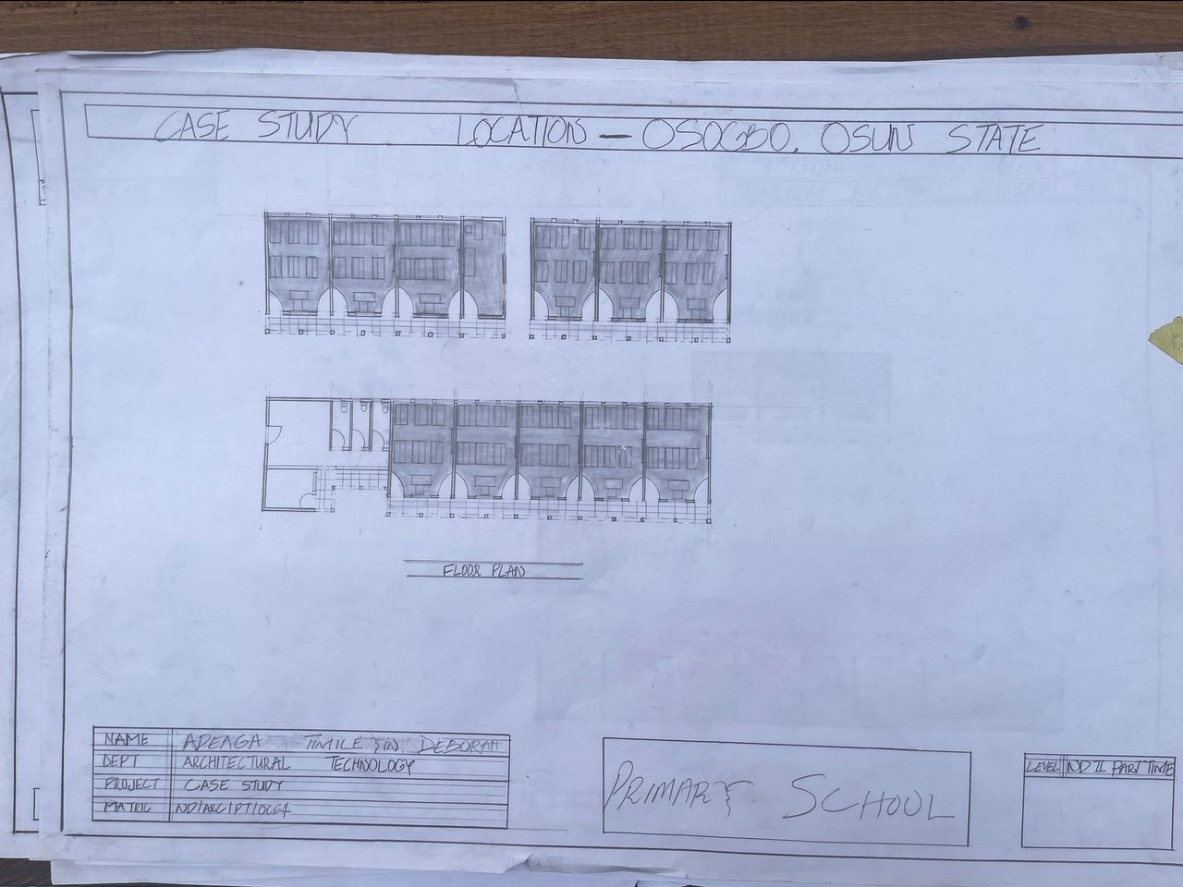 CASE STUDY LOCATION — OSOGBO, OSUN STATE
FLOOR PLAN
NAME ADEAGA DEBORAH
DEPT ARCHITECTURAL TECHNOLOGY
PROJECT CASE STUDY
MATRIC
PRIMARY SCHOOL
LEVEL ND II PART TIME